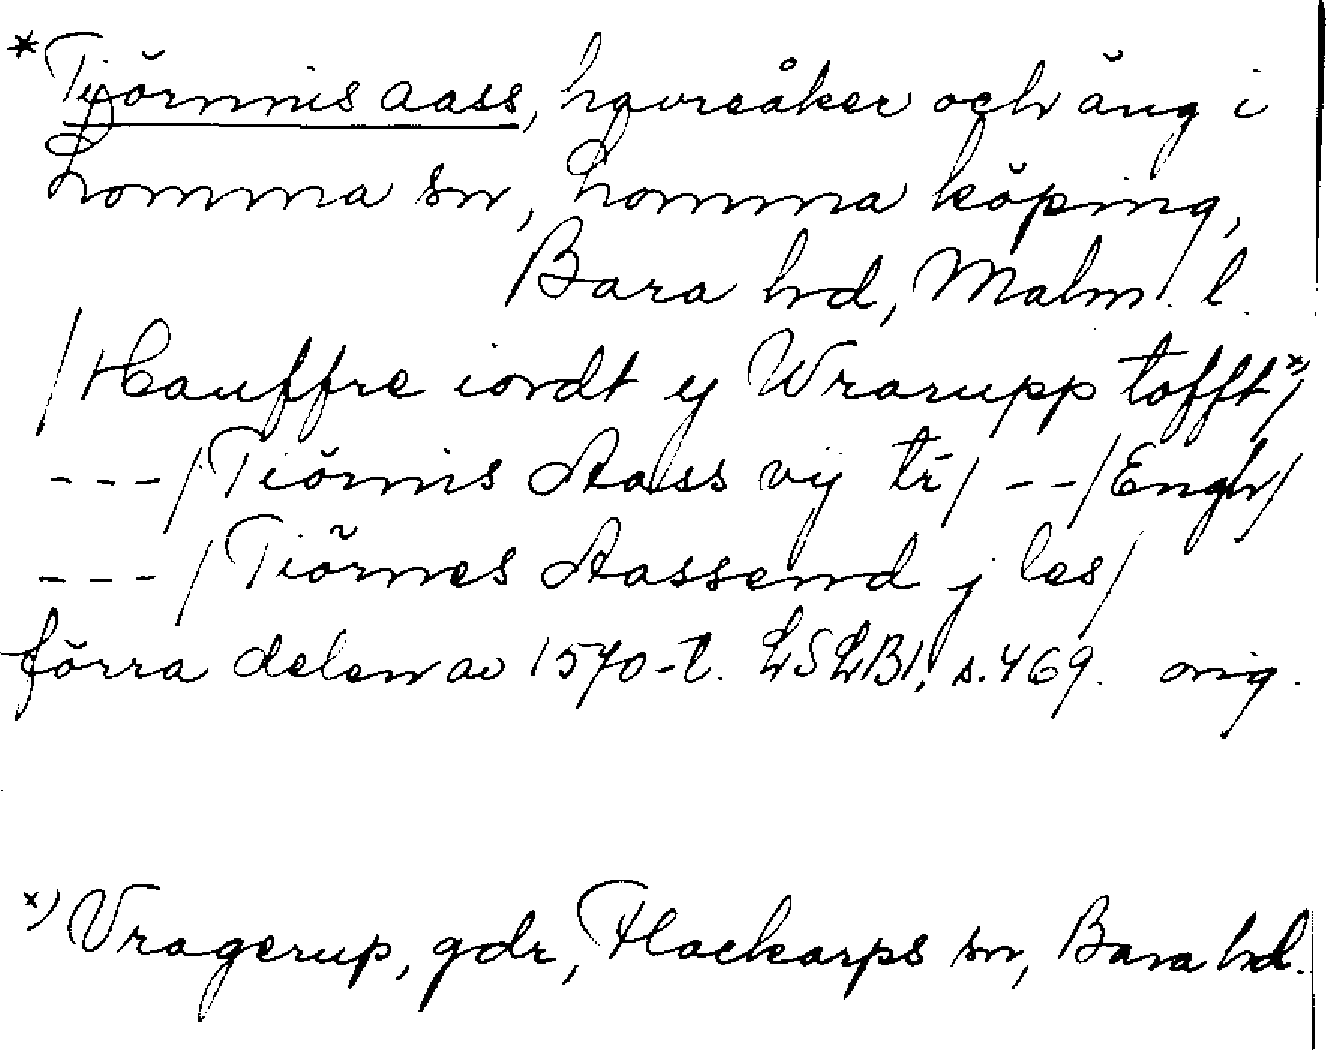 *Tjörnnis aass, havreåker och äng i
Lomma sn, Lomma köping,
Bara hd, Malm. l.
/Hauffre iordt y Wrarupp tofft*)/
---/Tiörnis Aass vij tr/ --/Engh/
---/Tiörnes Aassend j les/
förra delen av 1570-t. LSLB1, s. 469. orig.
*) Vragerup, gdr, Flackarps sn, Bara hd.